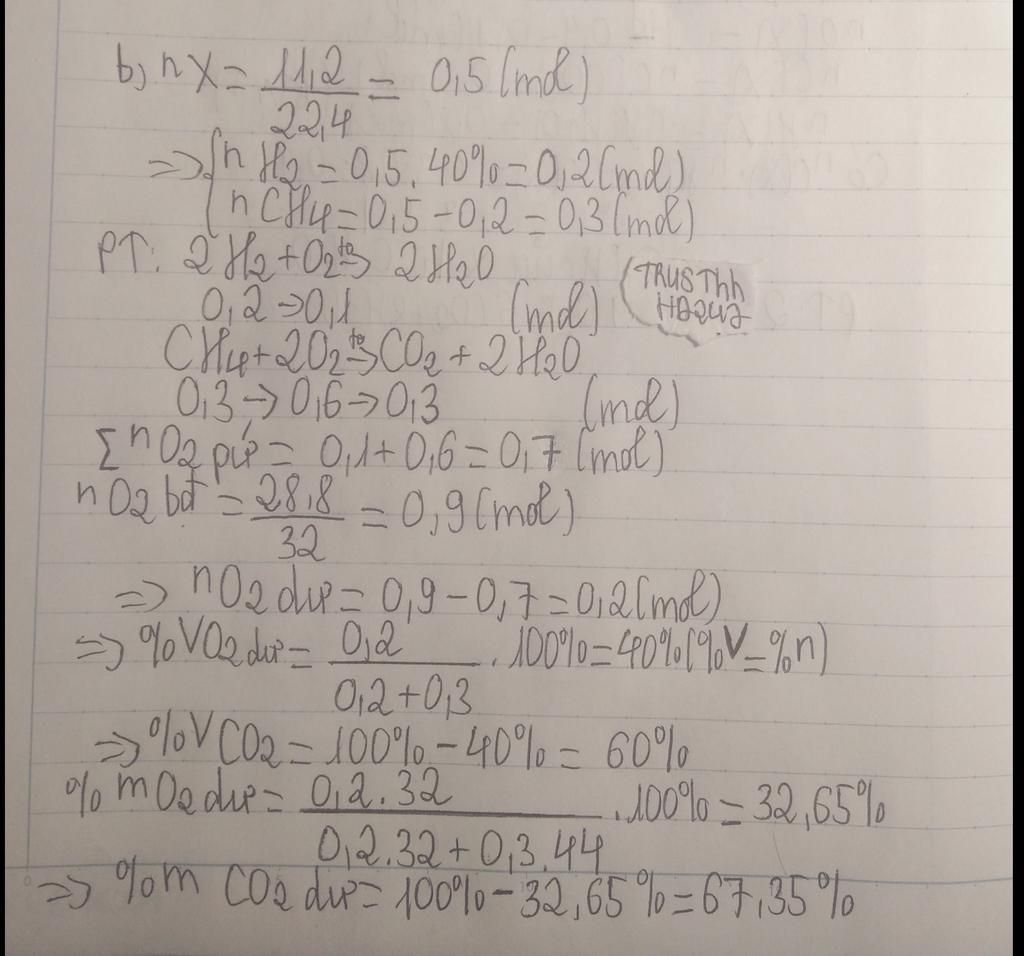 b, nX = 11,2/22,4 = 0,5 (mol)
=> { nH2 = 0,5.40% = 0,2 (mol)
nCH4 = 0,5 - 0,2 = 0,3 (mol)
PT: 2H2 + O2 -to-> 2H2O
0,2 -> 0,1 (mol)
(TRUSThh
HD247
CH4 + 2O2 -to-> CO2 + 2H2O
0,3 -> 0,6 -> 0,3 (mol)
∑nO2 pư = 0,1 + 0,6 = 0,7 (mol)
nO2 bđ = 28,8/32 = 0,9 (mol)
=> nO2 dư = 0,9 - 0,7 = 0,2 (mol)
=> %VO2 dư = 0,2/0,2+0,3 . 100% = 40% (%V = %n)
=> %VCO2 = 100% - 40% = 60%
%mO2 dư = 0,2.32/0,2.32+0,3.44 . 100% = 32,65%
=> %m CO2 dư = 100% - 32,65% = 67,35%